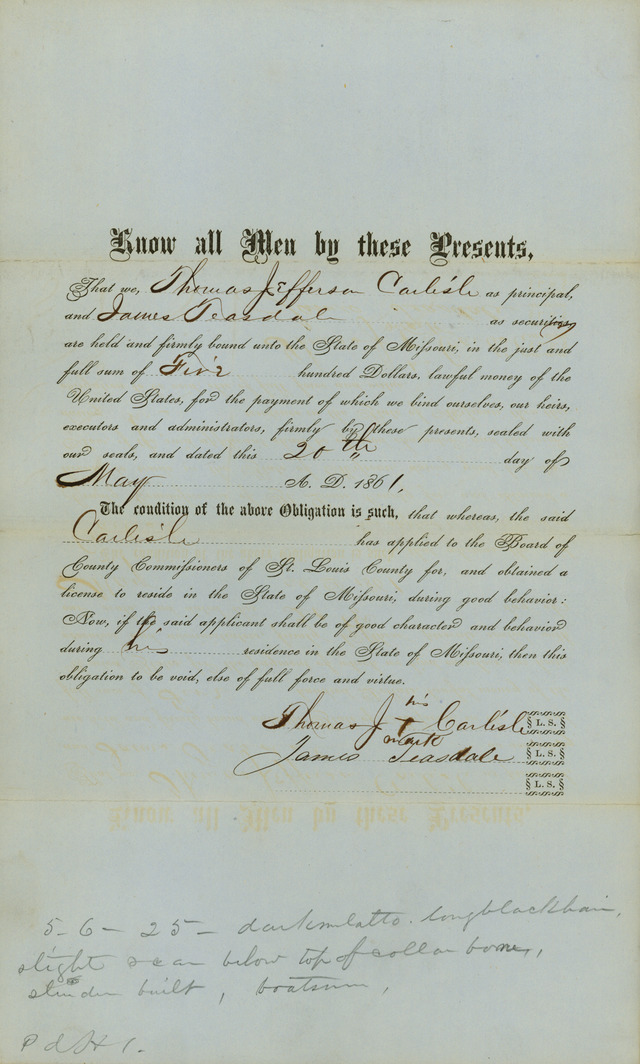 Know all Men by these Presents,
That we, Thomas Jefferson Carlisle as principal,
and James Teasdale as securities
are held and firmly bound unto the State of Missouri, in the just and
full sum of Five hundred Dollars, lawful money of the
United States, for the payment of which we bind ourselves, our heirs,
executors and administrators, firmly by these presents, sealed with
our seals, and dated this 20th day of
May A. D. 1861,
The condition of the above Obligation is such, that whereas, the said
Carlisle has applied to the Board of
County Commissioners of St. Louis County for, and obtained a
license to reside in the State of Missouri, during good behavior:
Now, if the said applicant shall be of good character and behavior
during his residence in the State of Missouri, then this
obligation to be void, else of full force and virtue.
his
Thomas J + Carlisle L. S.
mark
James Teasdale L. S.
L. S.
5-6- 25- dark mlatto. long black hair,
slight scar below top of collar bone,
slender built, boatsman,
Pd $1.